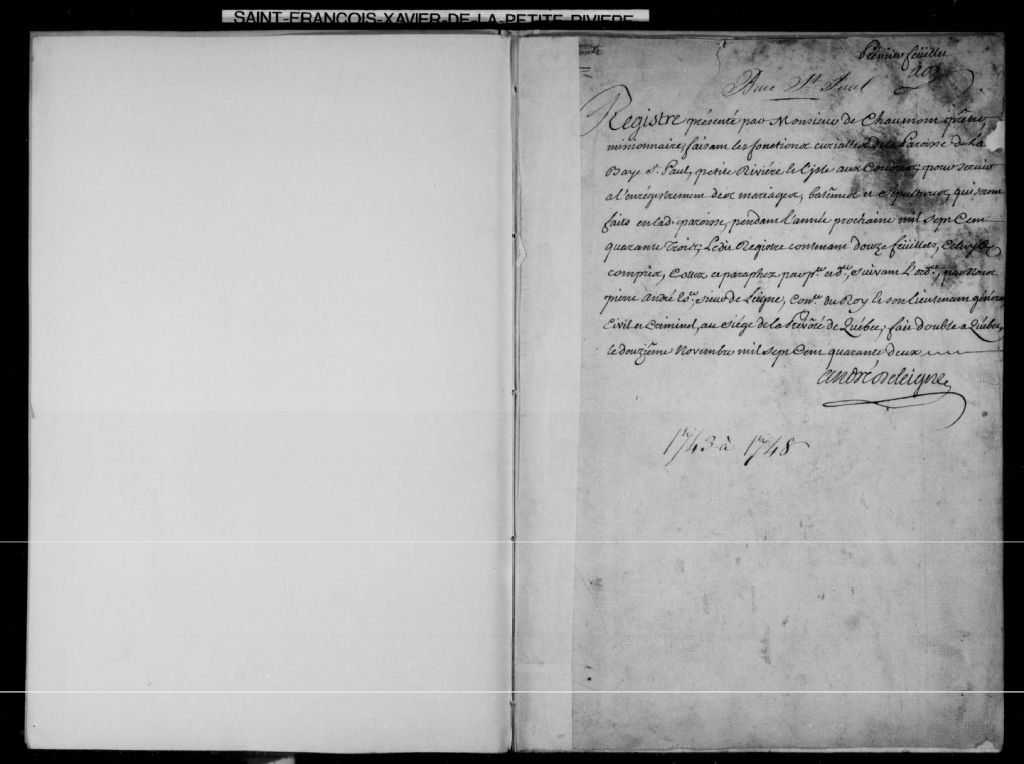 SAINT-FRANCOIS-XAVIER-DE-LA-PETITE-RIVIERE
Premier feüillet
Baie St Paul
Registre présenté par Monsieur de Chaumont prêtre
missionnaire, faisant les fonctions curialles de la Paroisse de La
Baye St Paul, petite Riviére le L'isle aux Coudres, pour servir
a l'enrégistrement des mariages, batêmes et sepultures, qui seront
faits en lad. paroisse, pendant l'année prochaine mil sept Cent
quarante Trois; Ledit Registre contenant douze feüillets, Celuy Cy
compris, Cottez et paraphez par pr. et dr., suivant L'ordce., par Nous
pierre André Ec.er, sieur de Leigne, Con.er du Roy & son lieutenant général
Civil et Criminel, au siége de la Prévôté de Québec; fait double a Québec,
le douziéme Novembre mil sept Cent quarante deux
André deleigne
1743 à 1748